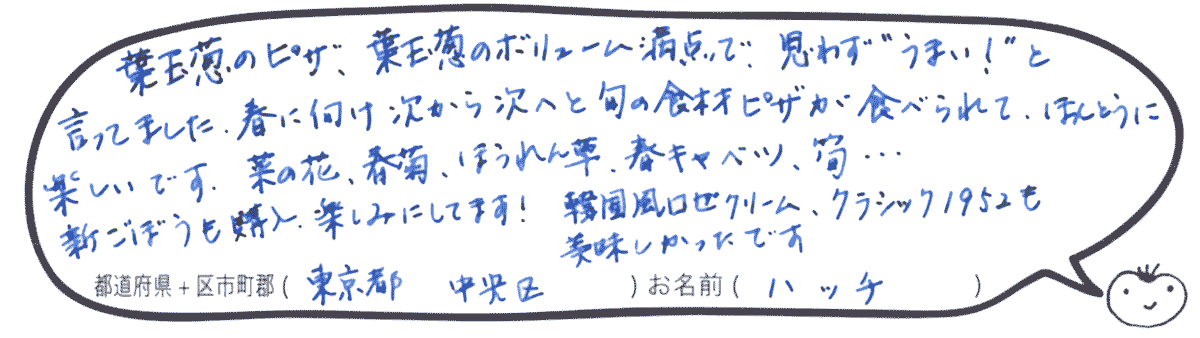 葉玉葱のピザ、葉玉葱のボリューム満点で、思わず“うまい！”と
言ってました。春に向け次から次へと旬の食材ピザが食べられて、ほんとうに
楽しいです。菜の花、春菊、ほうれん草、春キャベツ、筍…
新ごぼうも購入、楽しみにしてます！ 韓国風ロゼクリーム、クラシック1952も
美味しかったです
都道府県＋区市町郡（ 東京都 中央区 ）お名前（ ハッチ ）